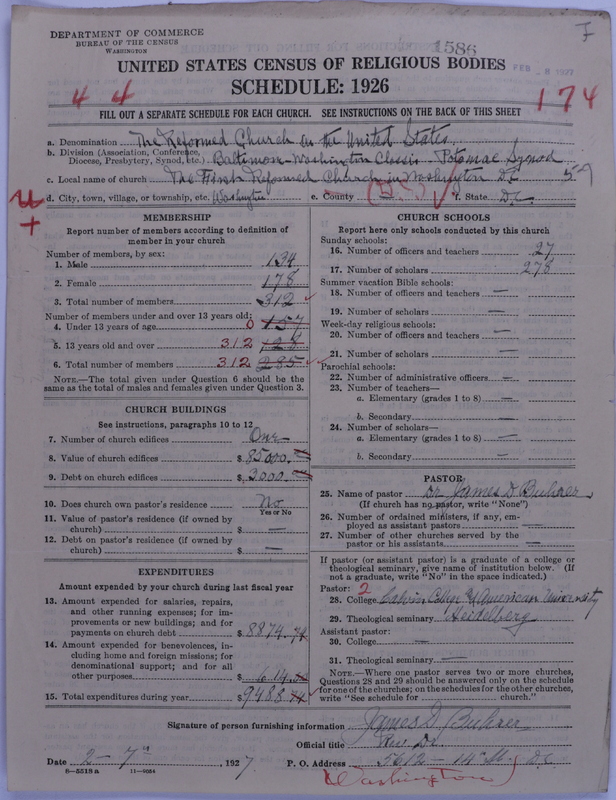 DEPARTMENT OF COMMERCE
BUREAU OF THE CENSUS
WASHINGTON
1586
FEB 8 1927
UNITED STATES CENSUS OF RELIGIOUS BODIES
SCHEDULE: 1926
4 4
174
FILL OUT A SEPARATE SCHEDULE FOR EACH CHURCH. SEE INSTRUCTIONS ON THE BACK OF THIS SHEET
a. Denomination The Reformed Church in the United States
b. Division (Association, Conference, Diocese, Presbytery, Synod, etc.) Baltimore-Washington Classis - Potomac Synod
c. Local name of church The First Reformed Church in Washington D.C. 59
d. City, town, village, or township, etc. Washington e. County f. State D.C.
MEMBERSHIP
Report number of members according to definition of
member in your church
Number of members, by sex:
1. Male 134
2. Female 178
3. Total number of members 312
Number of members under and over 13 years old:
4. Under 13 years of age 0 157
5. 13 years old and over 312 128
6. Total number of members 312 285
NOTE.—The total given under Question 6 should be the
same as the total of males and females given under Question 3.
CHURCH BUILDINGS
See instructions, paragraphs 10 to 12
7. Number of church edifices One
8. Value of church edifices $ 85000.
9. Debt on church edifices $ 3000.
10. Does church own pastor's residence No
Yes or No
11. Value of pastor's residence (if owned by
church) $ —
12. Debt on pastor's residence (if owned by
church) $ —
EXPENDITURES
Amount expended by your church during last fiscal year
13. Amount expended for salaries, repairs,
and other running expenses; for im-
provements or new buildings; and for
payments on church debt $ 8874.74
14. Amount expended for benevolences, in-
cluding home and foreign missions; for
denominational support; and for all
other purposes $ 614.
15. Total expenditures during year $ 9488.74
CHURCH SCHOOLS
Report here only schools conducted by this church
Sunday schools:
16. Number of officers and teachers 27
17. Number of scholars 278
Summer vacation Bible schools:
18. Number of officers and teachers —
19. Number of scholars —
Week-day religious schools:
20. Number of officers and teachers —
21. Number of scholars —
Parochial schools:
22. Number of administrative officers —
23. Number of teachers—
a. Elementary (grades 1 to 8) —
b. Secondary —
24. Number of scholars—
a. Elementary (grades 1 to 8) —
b. Secondary —
PASTOR
25. Name of pastor Dr James D Buhrer
(If church has no pastor, write "None")
26. Number of ordained ministers, if any, em-
ployed as assistant pastors —
27. Number of other churches served by the
pastor or his assistants —
If pastor (or assistant pastor) is a graduate of a college or
theological seminary, give name of institution below. (If
not a graduate, write "No" in the space indicated.)
Pastor: 2
28. College Calvin College & American University
29. Theological seminary Heidelberg
Assistant pastor:
30. College —
31. Theological seminary —
NOTE.—Where one pastor serves two or more churches,
Questions 28 and 29 should be answered only on the schedule
for one of the churches; on the schedules for the other churches,
write "See schedule for church."
Signature of person furnishing information James D Buhrer
Official title
Date 2-7th, 1927 P. O. Address 5612 - 14th St D.C.
8-5518 a 11-9054
Washington